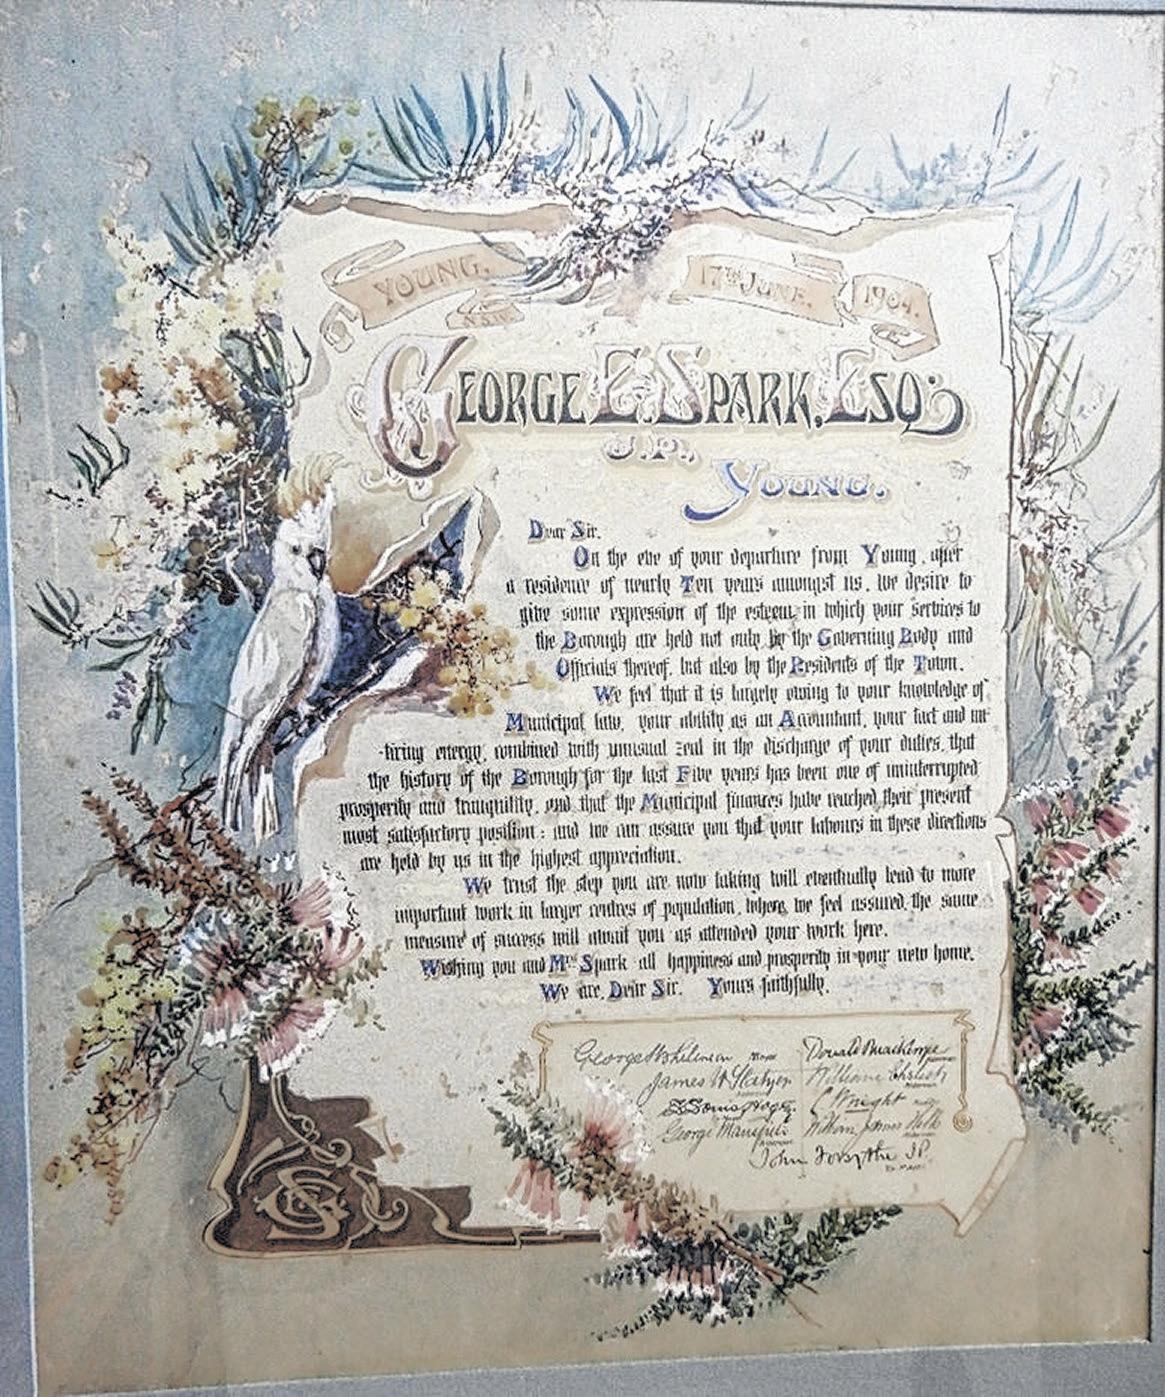 YOUNG.
N.S.W.
17TH JUNE. 1904.
GEORGE E. SPARK, ESQ:
J.P.,
YOUNG.
Dear Sir.
On the eve of your departure from Young, after
a residence of nearly Ten years amongst us, We desire to
give some expression of the esteem in which your Services to
the Borough are held not only by the Governing Body and
Officials thereof, but also by the Residents of the Town.
We feel that it is largely owing to your knowledge of
Municipal law, your ability as an Accountant, your tact and un-
-tiring energy, combined with unusual zeal in the discharge of your duties, that
the history of the Borough for the last Five years has been one of uninterrupted
prosperity and tranquility, and that the Municipal finances have reached their present
most satisfactory position: and we can assure you that your labours in these directions
are held by us in the highest appreciation.
We trust the step you are now taking will eventually lead to more
important work in larger centres of population, where, we feel assured, the same
measure of success will await you as attended your work here.
Wishing you and Mrs Spark all happiness and prosperity in your new home.
We are, Dear Sir. Yours faithfully.
George Mayor
Donald
James
William
C Wright
George
William James
John Forsythe JP.